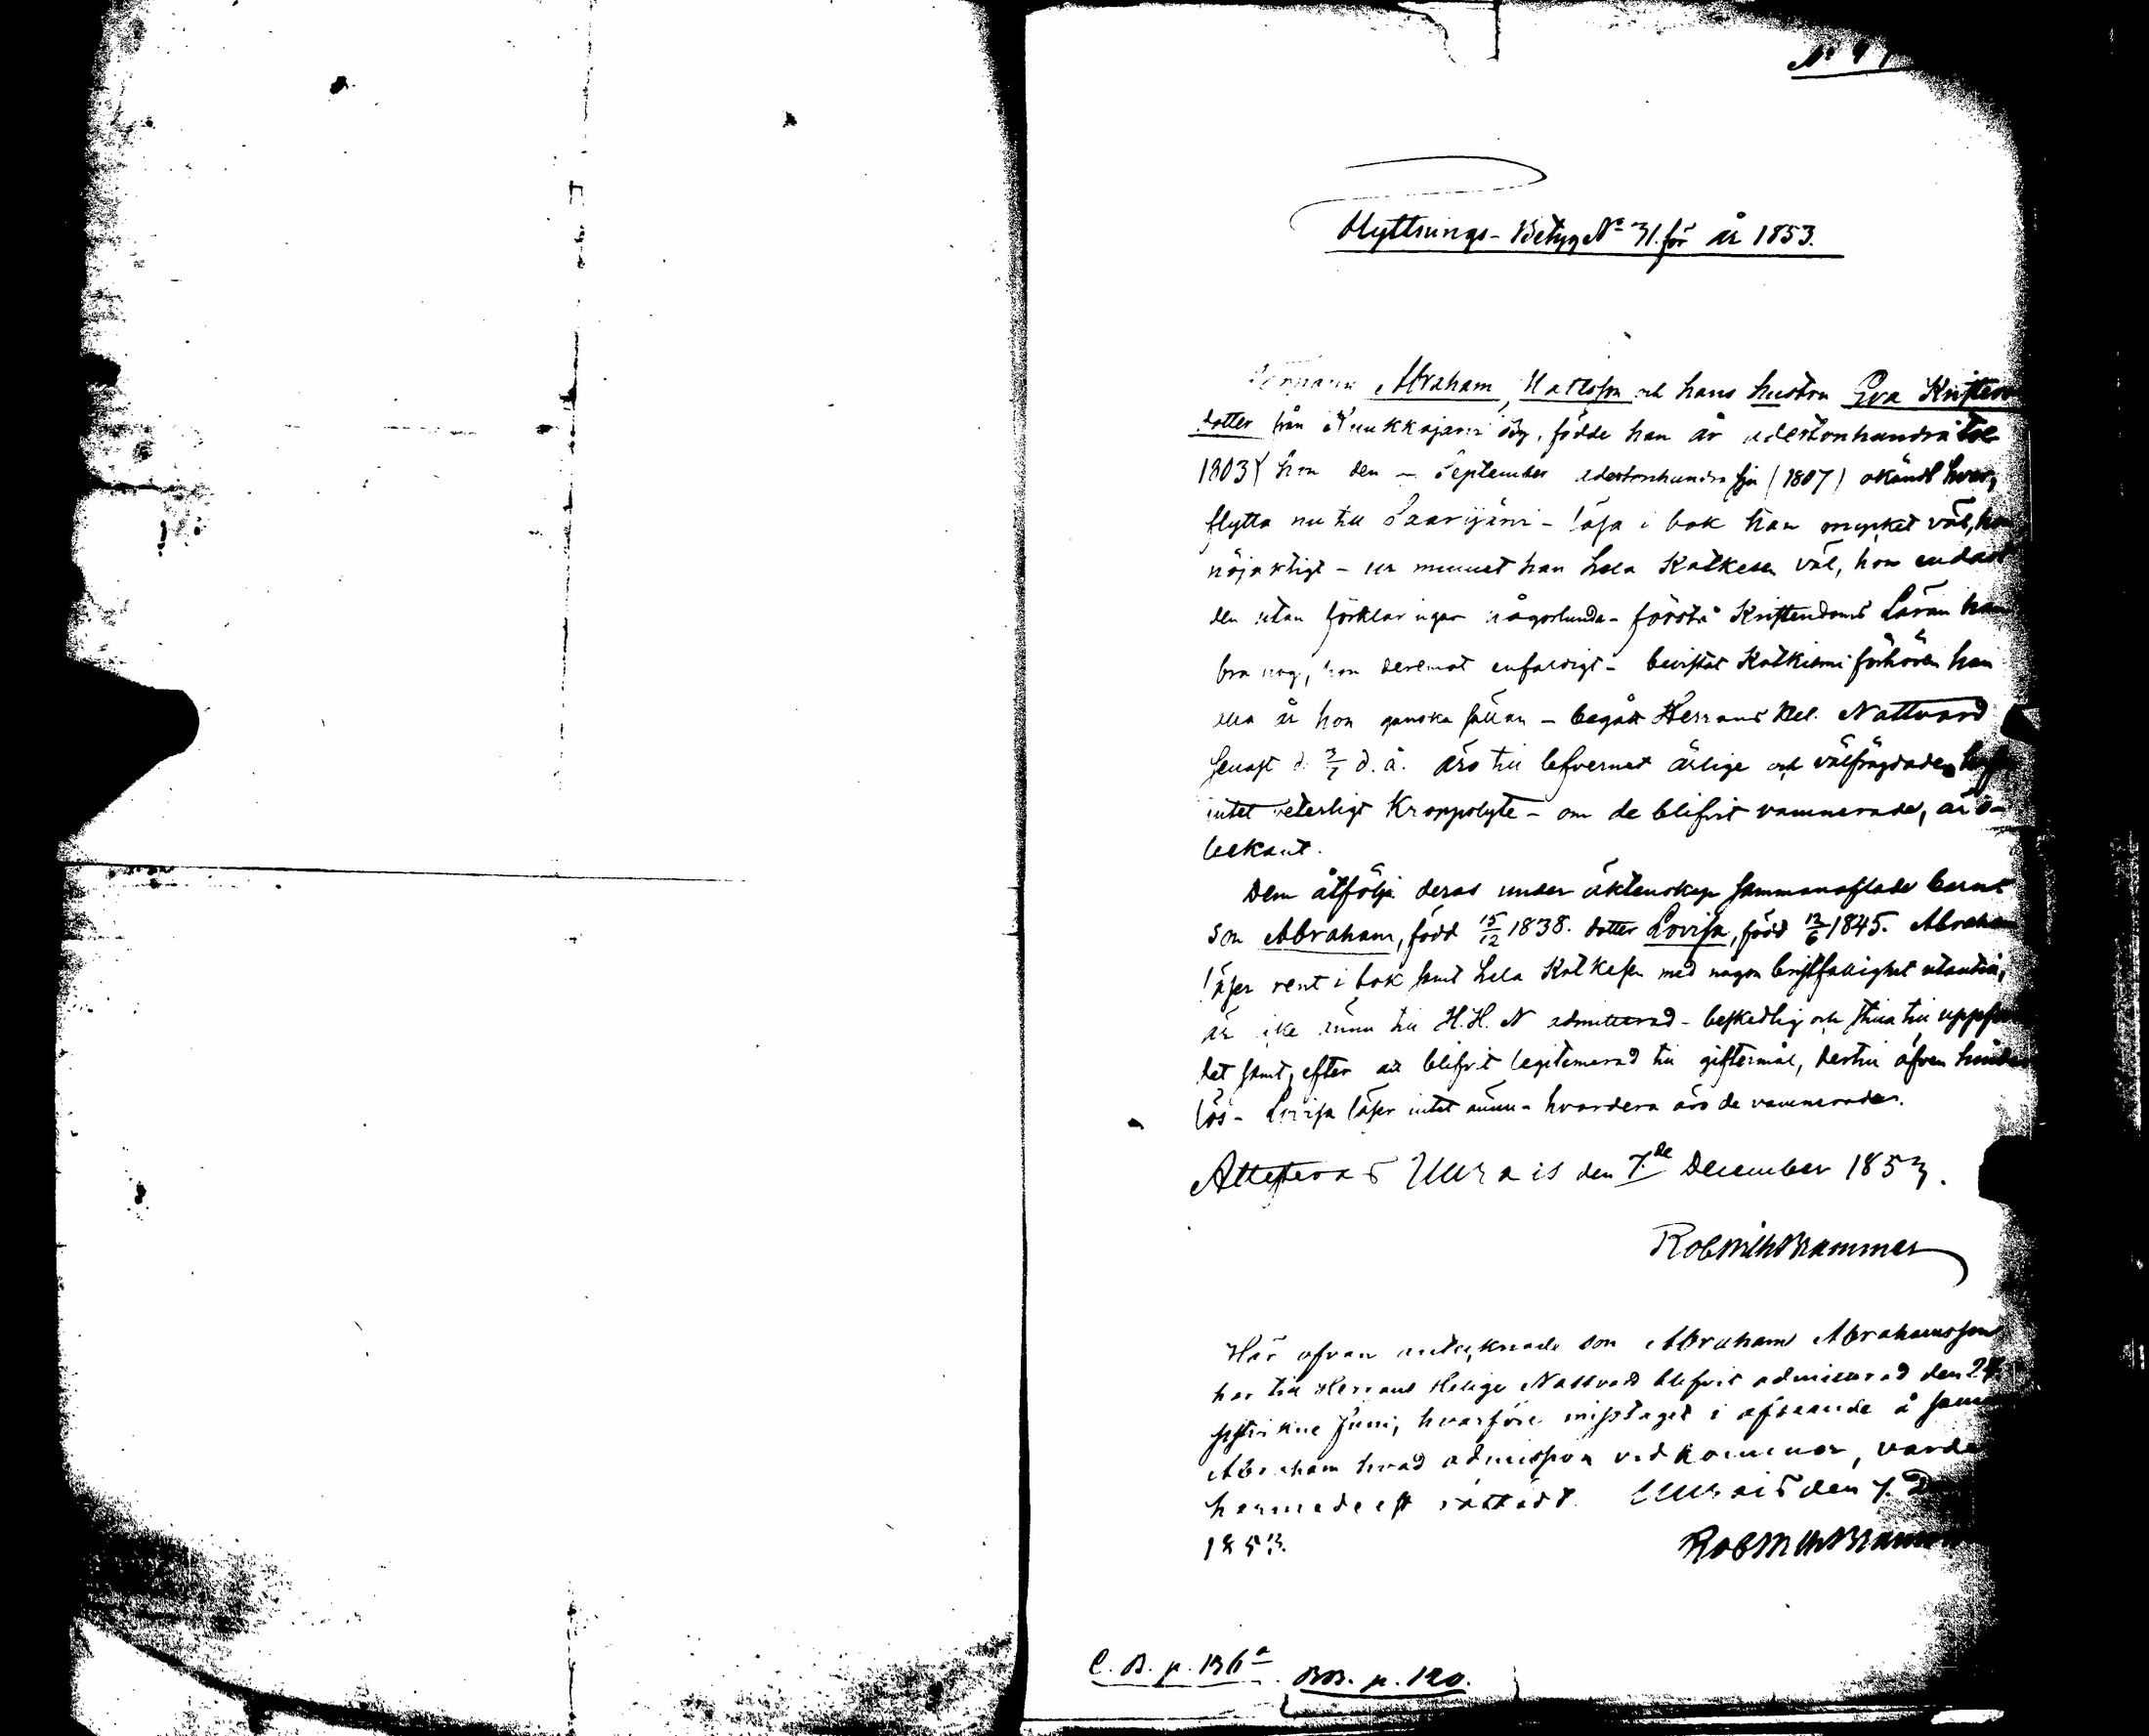 No 4
Flyttnings-Betyg No 31. för år 1853.
Abraham, Mattsson och hans hustru Eva Kristers
dotter från by, födde han år adertonhundra tre
1803) hon den – September adertonhundra sju (1807) okändt hvar,
flytta nu till Saarijärvi – läsa i bok han mycket väl, hon
nöjaktigt – ur minnet han hela Katkesen väl, hon endast
den utan förklaringar någorlunda – förstå Kristendoms Läran han
bra nog, hon deremot enfaldigt – bevistat Katkismi förhören han
hon ganska sällan – begått Herrans Hel. Nattvard
senast d. d. å. äro till lefvernet ärlige och välfrägdade,
intet veterligt Kroppslyte – om de blifvit vaccinerade, är o-
bekant.
Dem åtfölja deras under äktenskap sammanaflade barn:
son Abraham, född 15/12 1838. dotter Lovisa, född 12/6 1845. Abraham
läser rent i bok samt hela Katkesen med någon bristfällighet utantill,
är icke ännu till H.H. N admitterad – beskedlig och stilla till uppfö
det samt, efter att blifvit legitimerad till giftermål, dertill äfven hinder
lös – Lovisa läser intet ännu – hvardera äro de vaccinerade.
Attesteras Uurais den 7de December 1853.
Rob Wilh Brammer
Här ofvan antecknade son Abraham Abrahamsson
har till Herrans Helige Nattvard blifvit admitterad den 24
sistlidne Juni, hvarföre misstaget i afseende å
Abraham hvad admission vedkommer, varder
härmedelst rättadt. Uurais den 7. D
1853. Rob Wilh Bramm
C. B. p. 136a BB. p. 120.